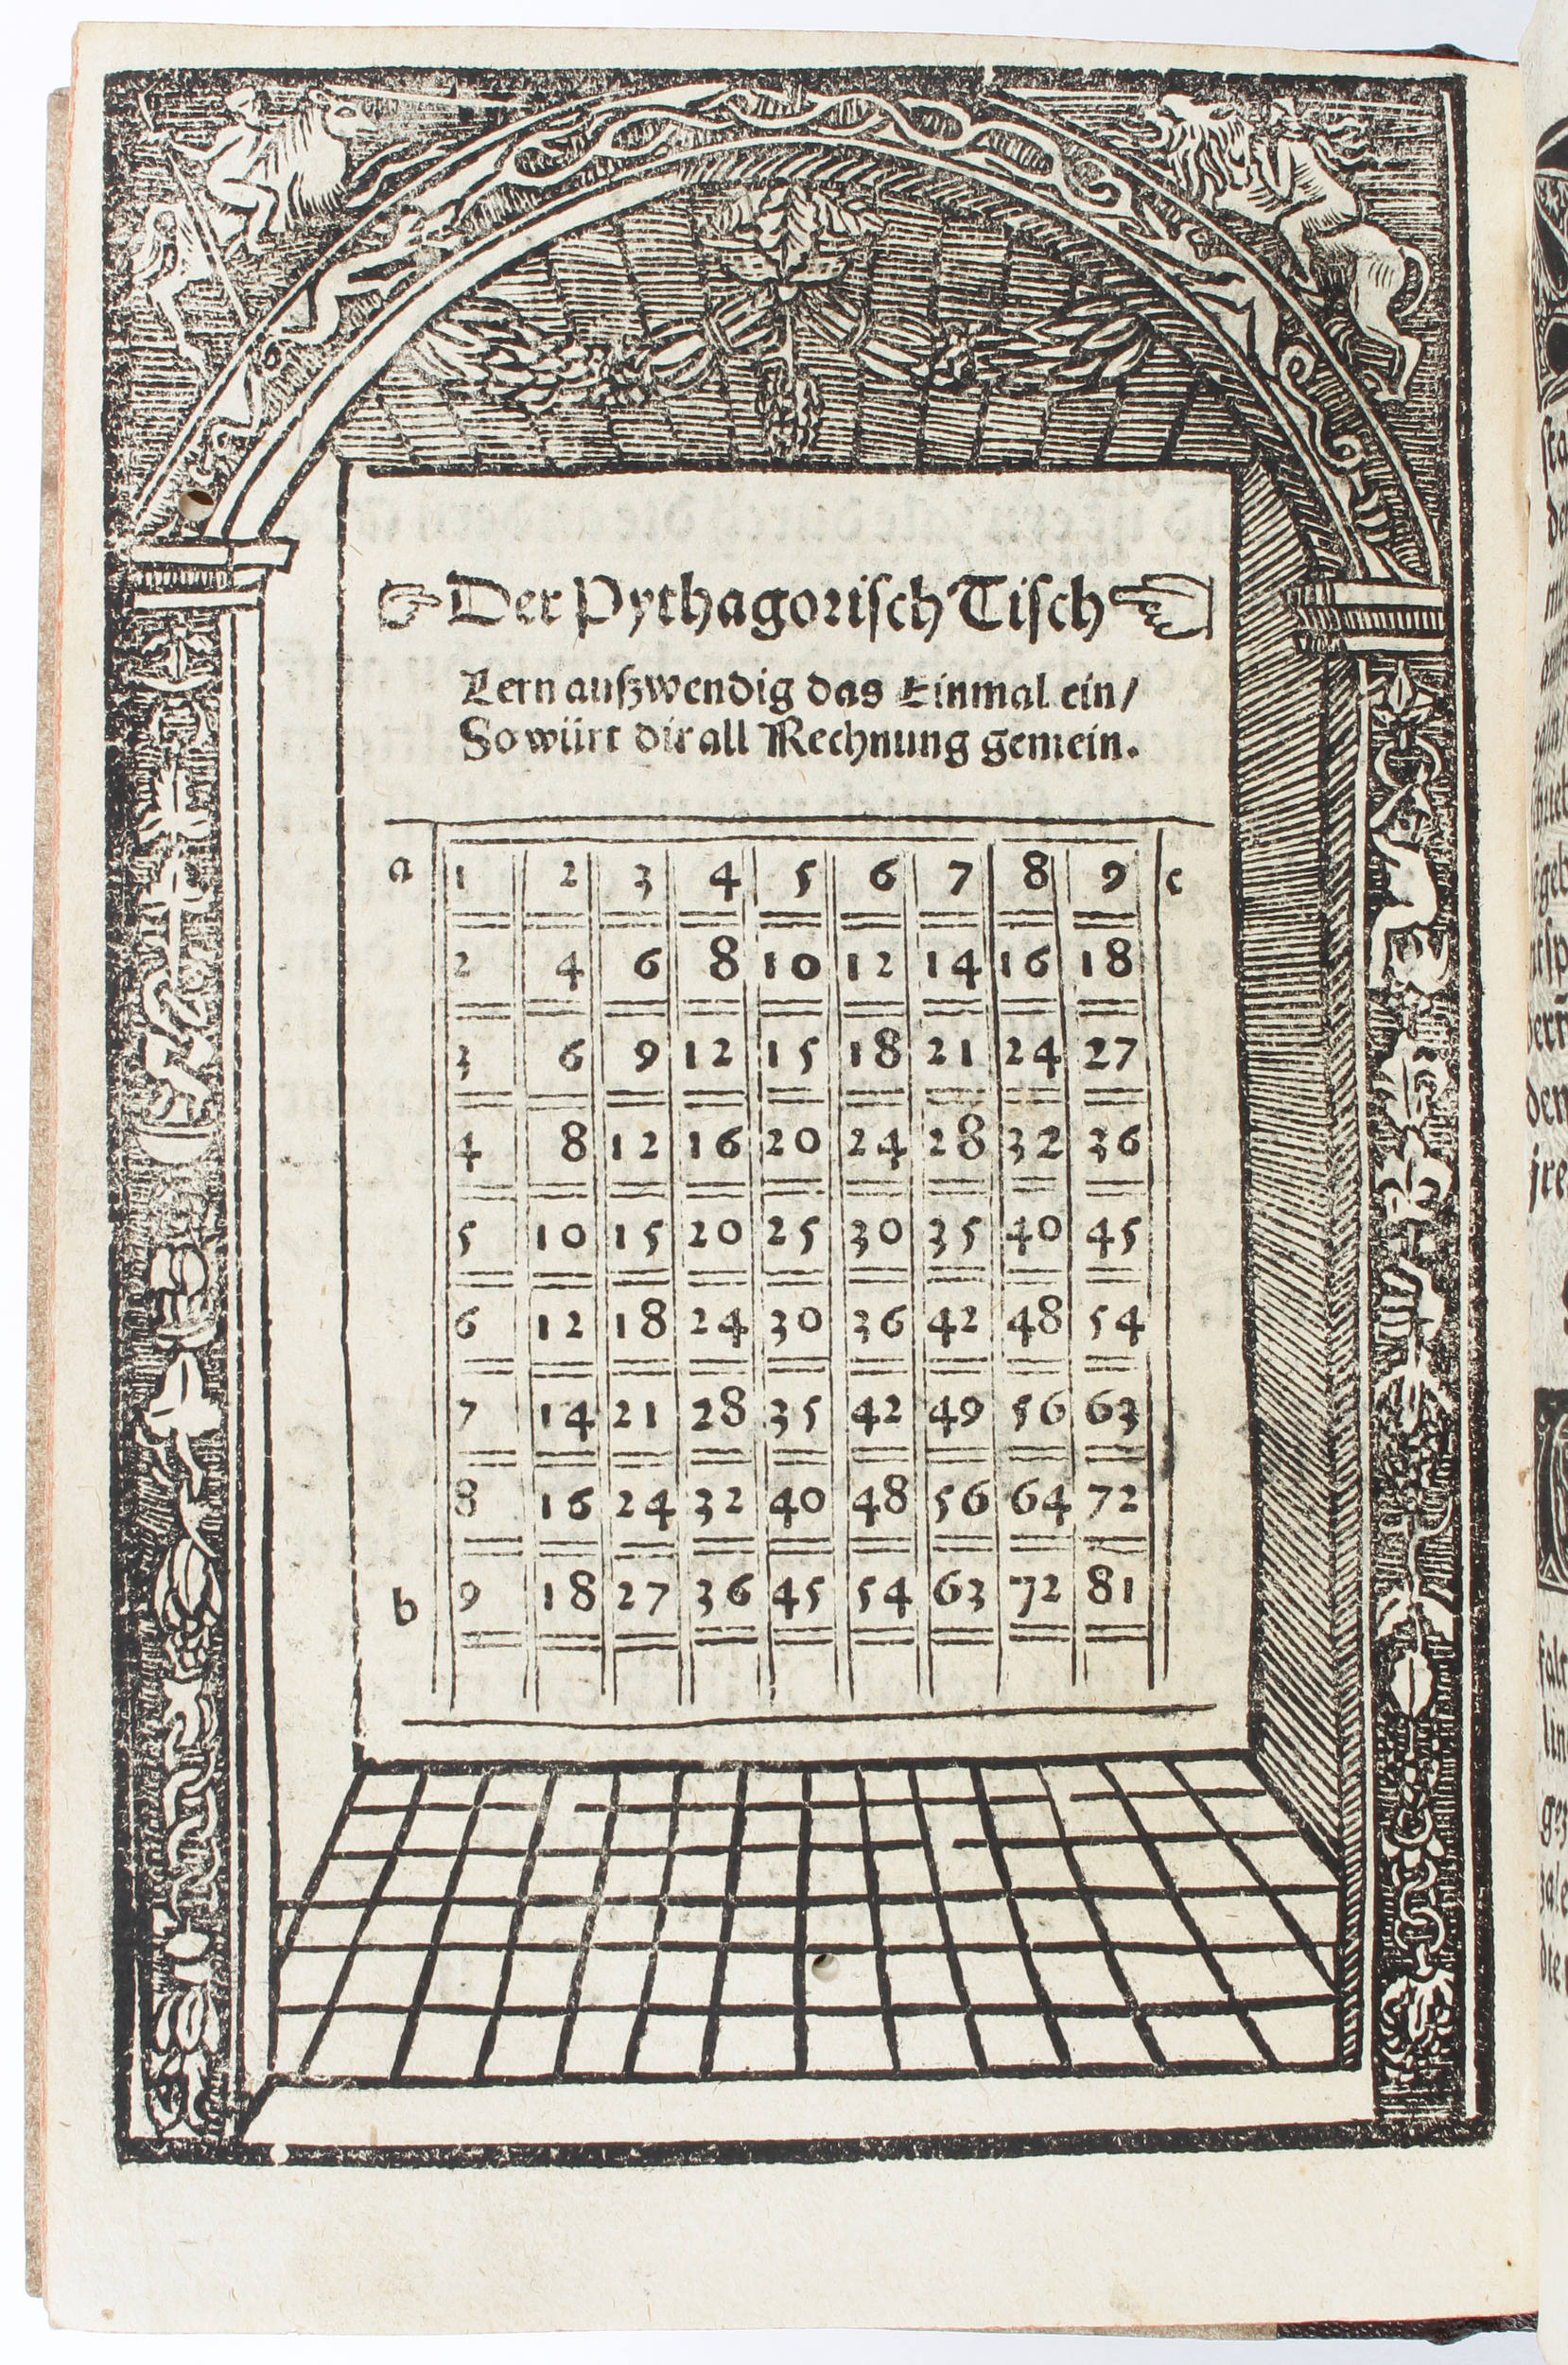 ☞Der Pythagorisch Tisch☜
Lern außwendig das Einmal ein/
So würt dir all Rechnung gemein.
a 1 2 3 4 5 6 7 8 9 c
2 4 6 8 10 12 14 16 18
3 6 9 12 15 18 21 24 27
4 8 12 16 20 24 28 32 36
5 10 15 20 25 30 35 40 45
6 12 18 24 30 36 42 48 54
7 14 21 28 35 42 49 56 63
8 16 24 32 40 48 56 64 72
b 9 18 27 36 45 54 63 72 81